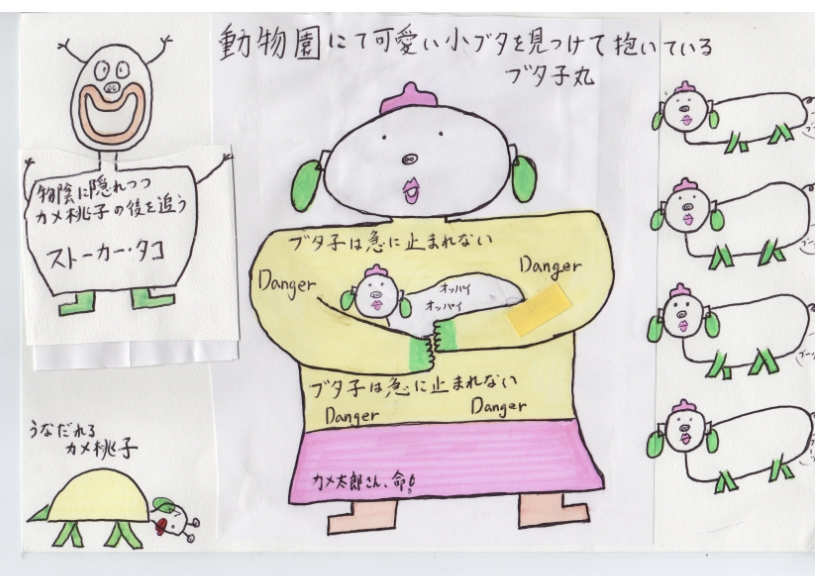 動物園にて可愛い小ブタを見つけて抱いている
ブタ子丸
物陰に隠れつつ
カメ桃子の後を追う
ストーカー・タコ
ブタ子は急に止まれない
Danger
Danger
オッパイ
オッパイ
ブタ子は急に止まれない
Danger
Danger
カメ太郎さん、命!
うなだれる
カメ桃子